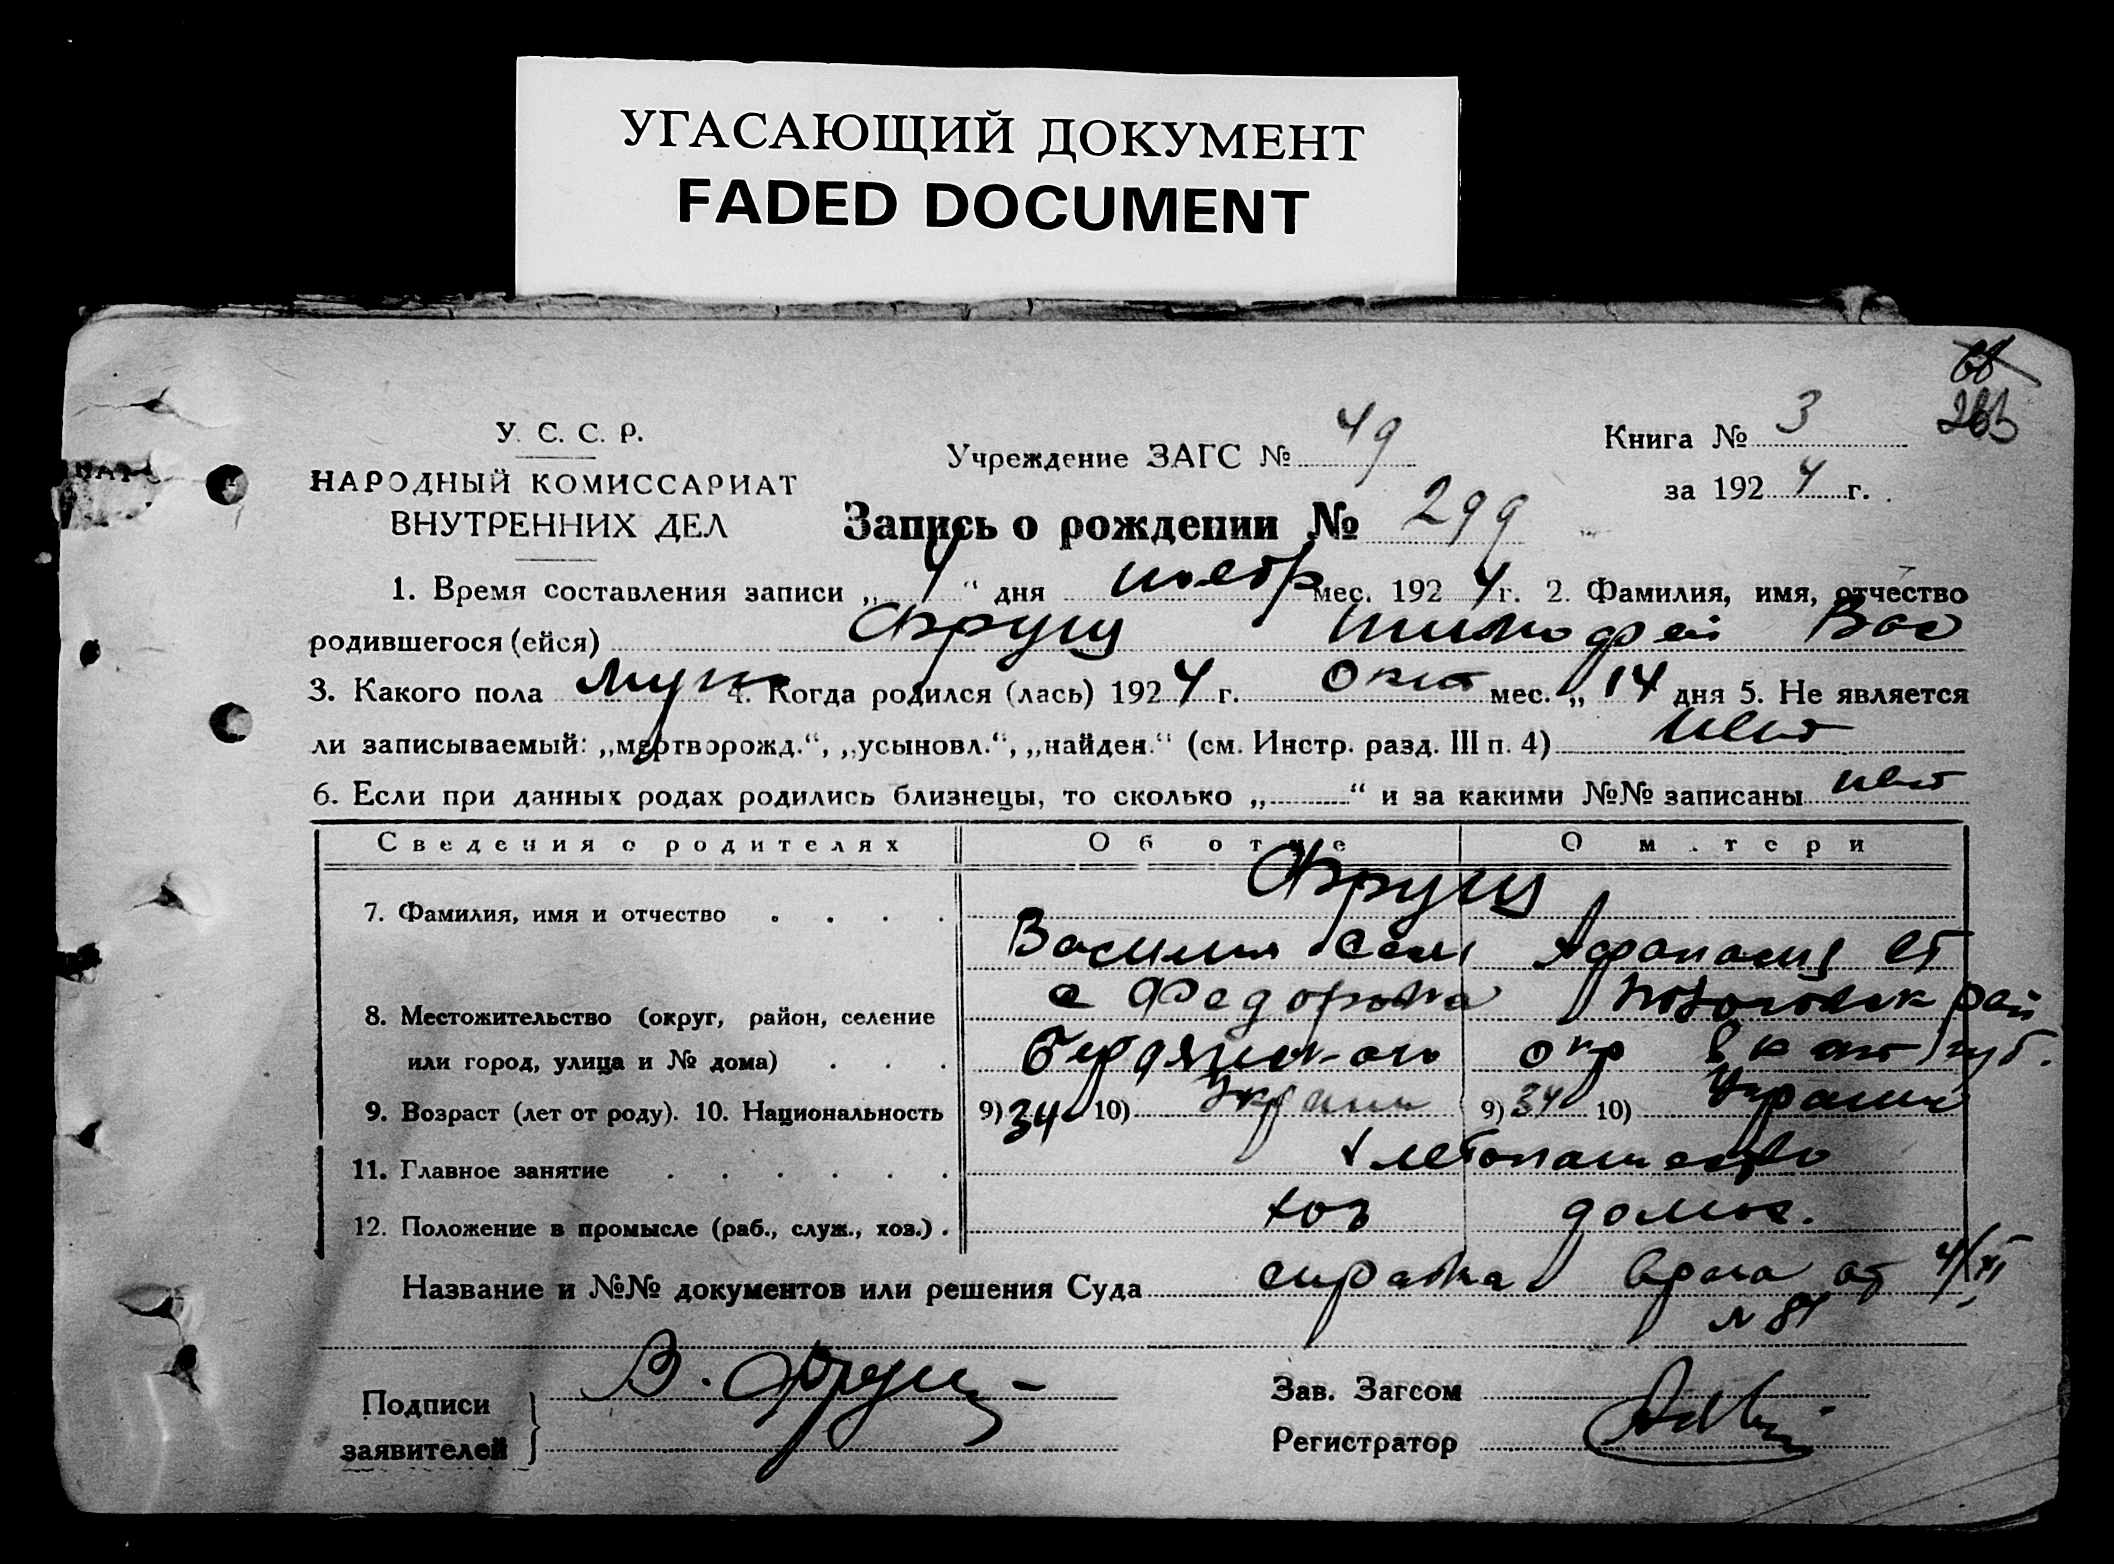 УГАСАЮЩИЙ ДОКУМЕНТ
FADED DOCUMENT
У. С. С. Р.
НАРОДНЫЙ КОМИССАРИАТ
ВНУТРЕННИХ ДЕЛ
Учреждение ЗАГС № 49
Книга № 3
за 1924 г.
Запись о рождении № 299
1. Время составления записи „4“ дня ноябр мес. 1924 г. 2. Фамилия, имя, отчество
родившегося (ейся) Фрущ Тимофей Вас
3. Какого пола муж 4. Когда родился (лась) 1924 г. Окт мес. „14 дня 5. Не является
ли записываемый: „мертворожд.“, „усыновл.“, „найден.“ (см. Инстр. разд. III п. 4) нет
6. Если при данных родах родились близнецы, то сколько „ “ и за какими №№ записаны нет
Сведения о родителях Об отце О матери
Фрущ
7. Фамилия, имя и отчество
Василий Сем Афанасия
с Федоровка рай
8. Местожительство (округ, район, селение
или город, улица и № дома) Бердянского окр Екат губ.
9. Возраст (лет от роду). 10. Национальность 9) 34 10) Украин 9) 34 10) Украин
11. Главное занятие хлебопашество
12. Положение в промысле (раб., служ., хоз.) хоз домох.
Название и №№ документов или решения Суда справка врача от 4/XI
№ 81
Подписи
заявителей В. Фрущ
Зав. Загсом
Регистратор